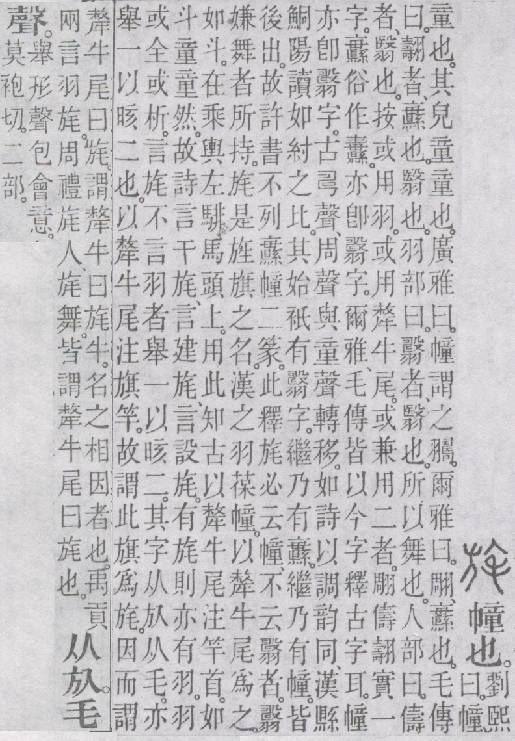 旄幢也。劉熙
曰。幢
童也。其皃童童也。廣雅曰。幢謂之翿。爾雅曰。翢、纛也。毛傳
曰。翿者、纛也。翳也。羽部曰。𦒻者、翳也。所以舞也。人部曰。儔
者、翳也。按或用羽。或用犛牛尾。或兼用二者。翢儔翿實一
字。纛俗作纛。亦卽𦒻字。爾雅、毛傳皆以今字釋古字耳。幢
亦卽𦒻字。古𠷎聲、周聲與童聲轉移。如詩以調韵同、漢縣
鮦陽讀如紂之比。其始衹有𦒻字。繼乃有纛。繼乃有幢。皆
後出。故許書不列纛幢二篆。此釋旄必云幢、不云𦒻者。𦒻
嫌舞者所持。旄是旌旗之名。漢之羽葆幢。以犛牛尾爲之。
如斗。在乘輿左騑馬頭上。用此知古以犛牛尾注竿首。如
斗童童然。故詩言干旄、言建旄、言設旄。有旄則亦有羽。羽
或全或析。言旄不言羽者、舉一以晐二。其字从㫃从毛。亦
舉一以晐二也。以犛牛尾注旗竿。故謂此旗爲旄。因而謂
犛牛尾曰旄。謂犛牛曰旄牛。名之相因者也。禹貢
兩言羽旄。周禮旄人、旄舞。皆謂犛牛尾曰旄也。
从㫃。毛
聲。舉形聲包會意。
莫袍切。二部。